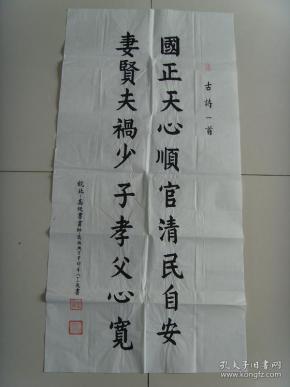 古詩一首
國正天心順官清民自安
妻賢夫禍少子孝父心寬
孔夫子旧书网